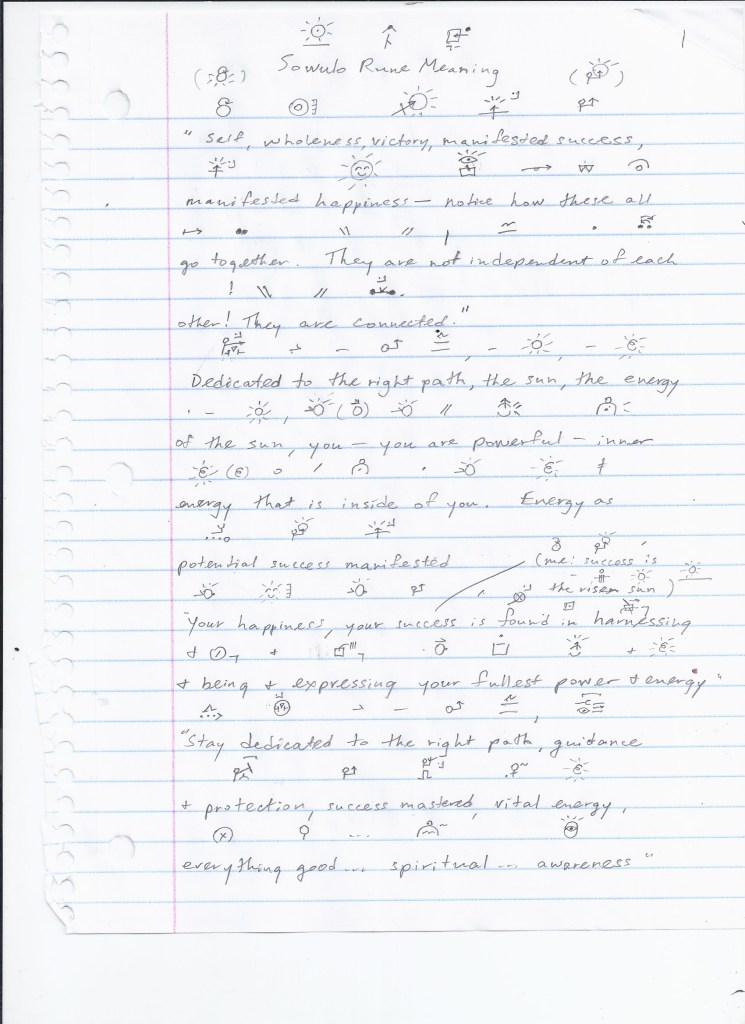 1
Sowulo Rune Meaning
" Self, wholeness, victory, manifested success,
manifested happiness — notice how these all
go together. They are not independent of each
other! They are connected."
Dedicated to the right path, the sun, the energy
of the sun, you — you are powerful — inner
energy that is inside of you. Energy as
potential success manifested
(me: success is
the risen sun)
"Your happiness, your success is found in harnessing
+ being + expressing your fullest power + energy"
"Stay dedicated to the right path, guidance
+ protection, success mastered, vital energy,
everything good... spiritual... awareness"